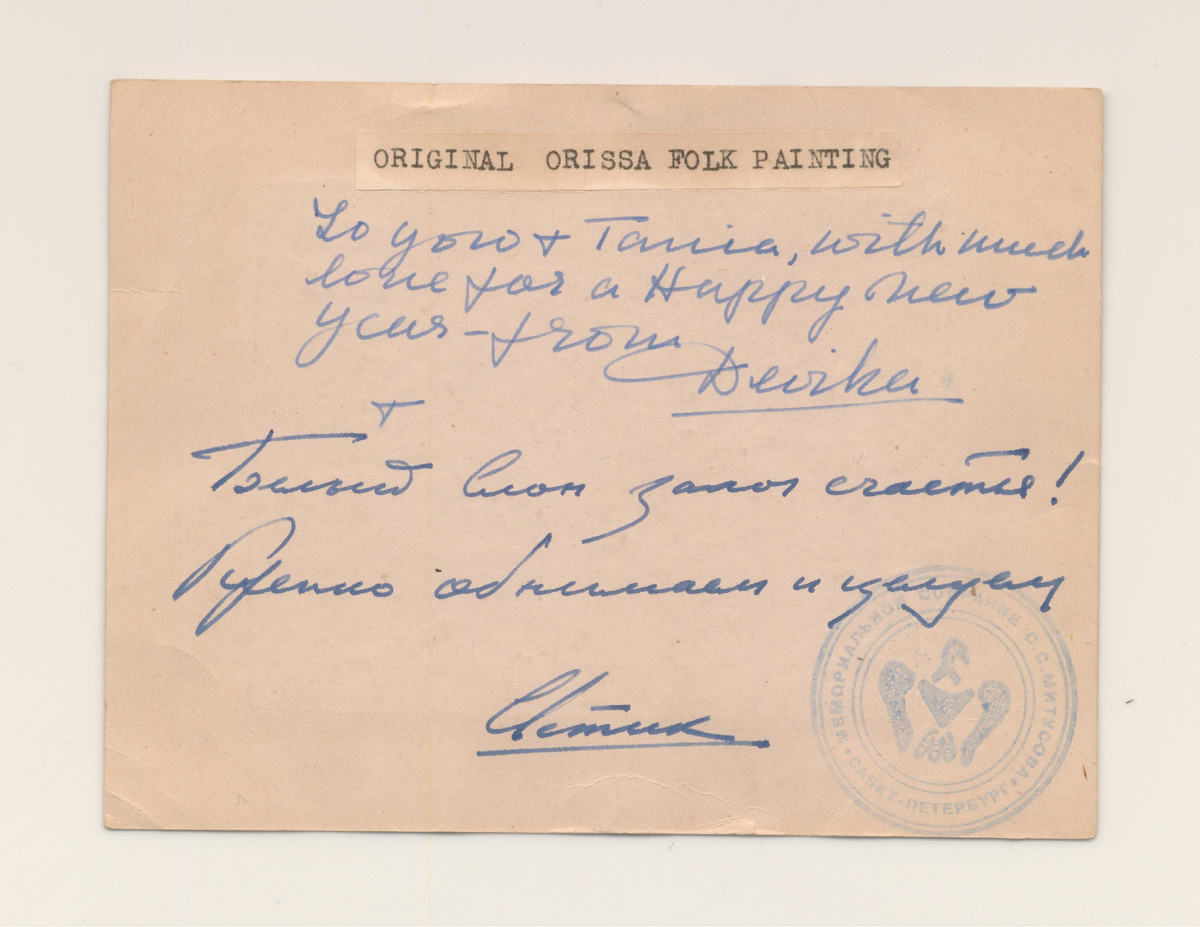 ORIGINAL ORISSA FOLK PAINTING
To you + Tania, with much
love for a Happy New
Year – from
Devika
+
Белый слон залог счастья!
Крепко обнимаем и целуем
Светик
МЕМОРИАЛЬНОЙ СОБРАНИЕ С.С. МИТУСОВА
САНКТ-ПЕТЕРБУРГ